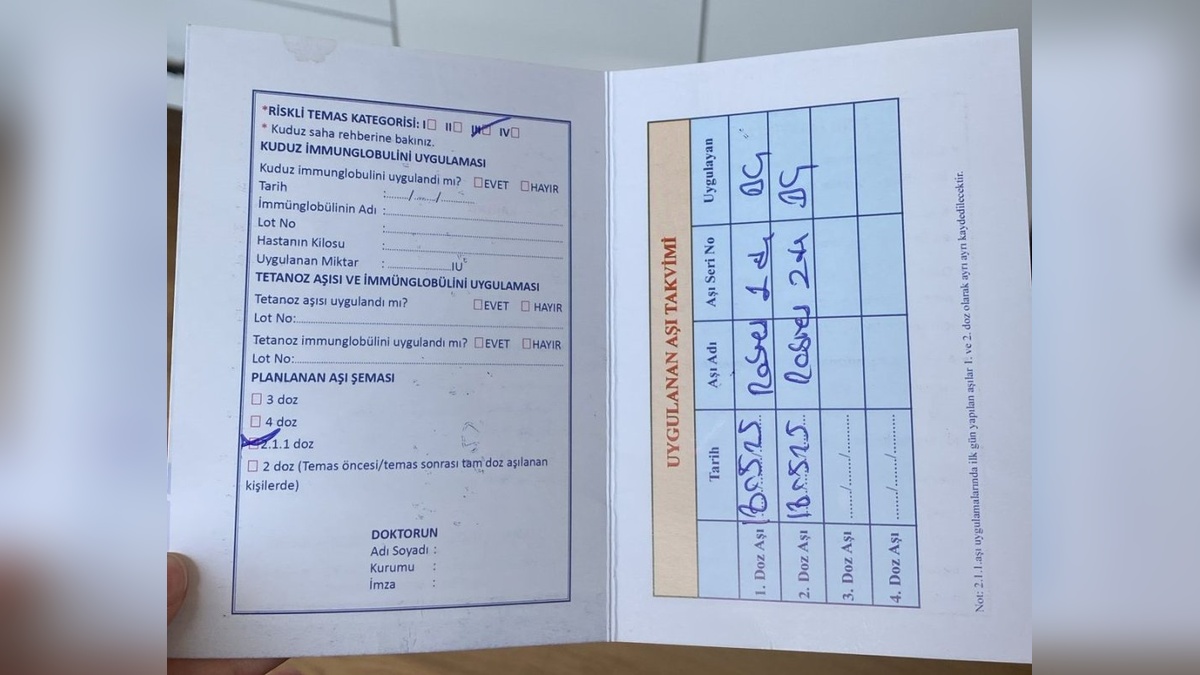 *RİSKLİ TEMAS KATEGORİSİ: I☐ II☐ III☑ IV☐
* Kuduz saha rehberine bakınız.
KUDUZ İMMUNGLOBULİNİ UYGULAMASI
Kuduz immunglobulini uygulandı mı? ☐EVET ☐HAYIR
Tarih :......../......./...........
İmmünglobülinin Adı :
Lot No :
Hastanın Kilosu :
Uygulanan Miktar :....................IU
TETANOZ AŞISI VE İMMÜNGLOBÜLİNİ UYGULAMASI
Tetanoz aşısı uygulandı mı? ☐EVET ☐ HAYIR
Lot No:
Tetanoz immunglobülini uygulandı mı? ☐EVET ☐HAYIR
Lot No:
PLANLANAN AŞI ŞEMASI
☐ 3 doz
☐ 4 doz
☑ 2.1.1 doz
☐ 2 doz (Temas öncesi/temas sonrası tam doz aşılanan
kişilerde)
DOKTORUN
Adı Soyadı :
Kurumu :
İmza :
UYGULANAN AŞI TAKVİMİ
Tarih Aşı Adı Aşı Seri No Uygulayan
1. Doz Aşı
2. Doz Aşı
3. Doz Aşı ......../......../............
4. Doz Aşı ......../......../............
Not: 2.1.1.aşı uygulamalarında ilk gün yapılan aşılar 1. ve 2. doz olarak ayrı ayrı kaydedilecektir.